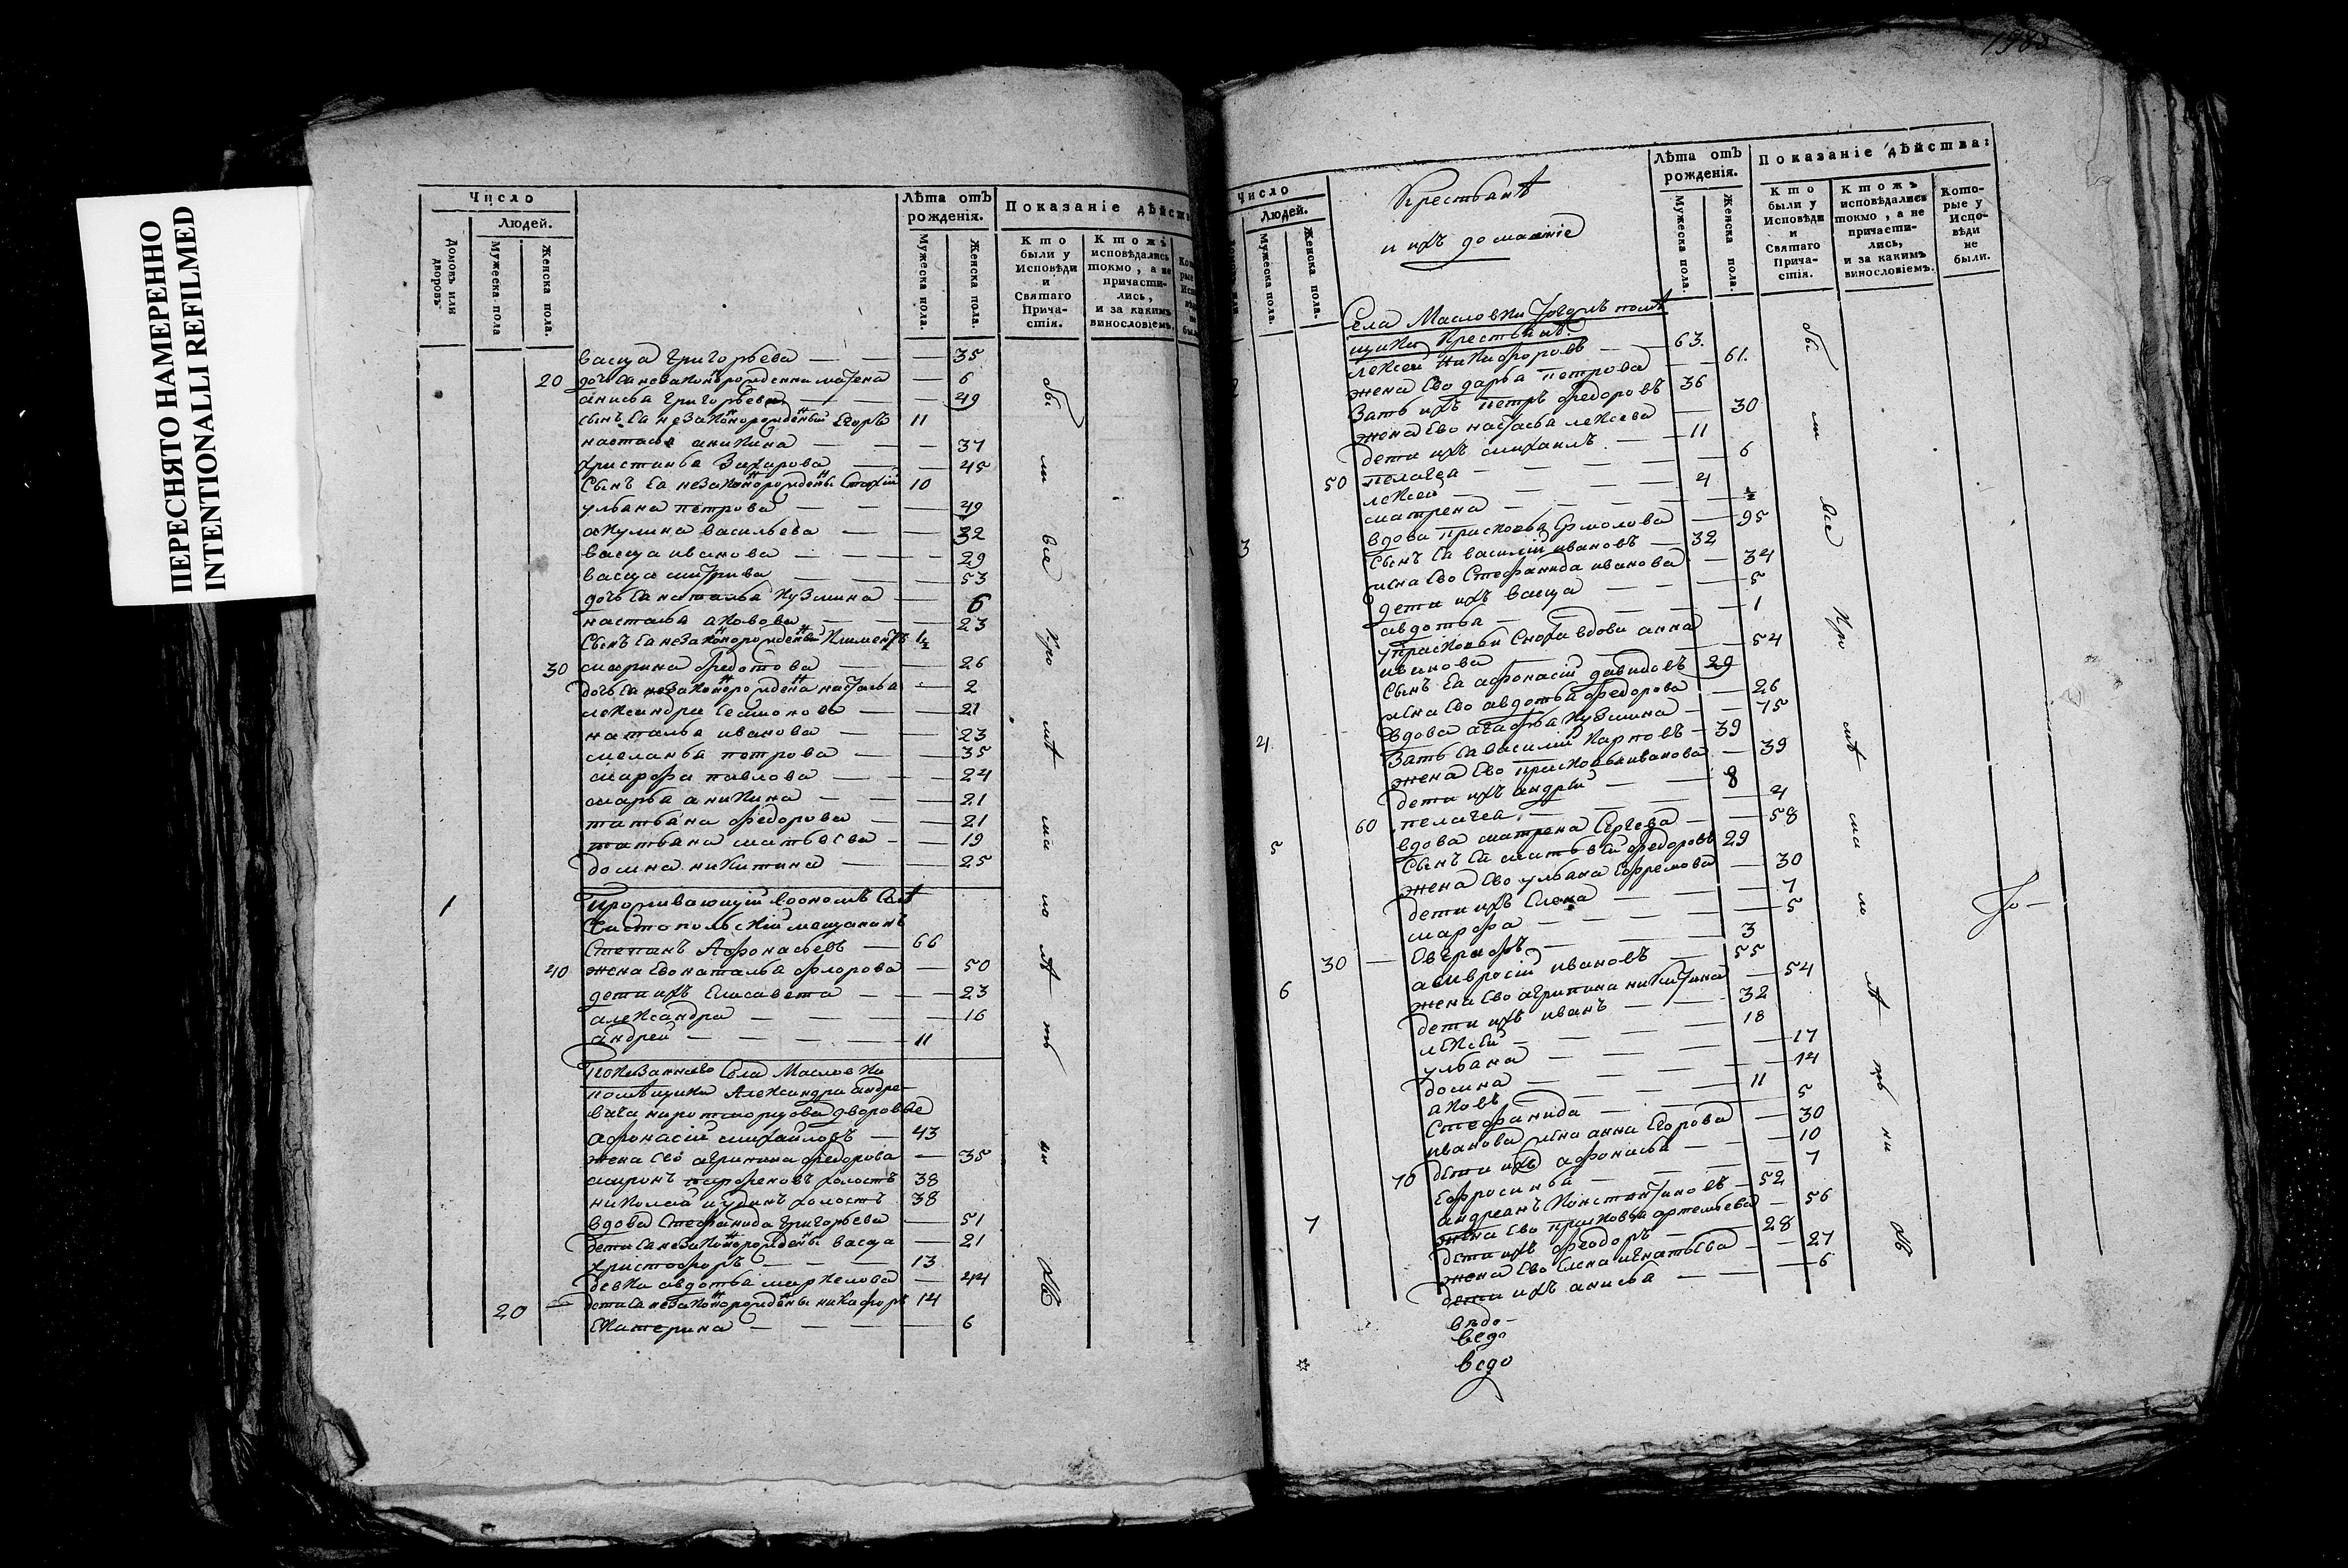 ПЕРЕСНЯТО НАМЕРЕННО
INTENTIONALLI REFILMED
Число
Людей.
Домовъ или дворовъ
Мужеска пола
Женска пола.
Лѣта отъ рожденія.
Мужеска пола.
Женска пола.
Показаніе дѣйст
Кто были у Исповѣди и Святаго Прича-стія.
Ктожъ исповѣдались токмо, а не причасти-лись, и за какимъ винословіемъ.
васса григорьева — — — 35
20 дочь Ея незаконорожденна матрена — 6
анисья григорьева — — 49
сынъ Ея незаконорожденый Егоръ 11
настасья аникина — — 37
христинья Захарова — — 45
Сынъ Ея незаконорождены 10
ульяна петрова — — 49
акулина васильева — — 32
васса иванова — — — 29
васса — — — 53
дочь Ея наталья Кузмина — 6
настасья акова — — 23
Сынъ Ея незаконорожденый Климентъ ½
30 марина федотова — — 26
дочь Ея незаконорождена настасья — 2
лександра — — 21
наталья иванова — — 23
меланья петрова — — 35
марфа павлова — — 24
марья аникина — — 21
татьяна федорова — — 21
татьяна матвѣева — — 19
домна никитина — — 25
1 Проживающий воономъ Селѣ
Чистопольский мещанинъ
Степанъ Афонасьевъ — 66
40 жена Ево наталья флорова — 50
дети ихъ Елисавета — — 23
александра — — — 16
андрей — — — 11
Села Масловки
помѣщика Александра андре-
дворовые
афонасий михайловъ — 43
жена Ево агрипина федорова — 35
миронъ парфеновъ холостъ 38
николай юдинъ холостъ 38
вдова Стефанида григорьева — 51
дети Ея незаконорождены васса — 21
христофоръ — — — 13
девка авдотья маркелова — 44
20 дети Ея незаконорождены никафоръ 14
Екатерина — — — 6
обы
ли
все
про
мѣ
ма
ло
лѣ
тн
ни
хъ
Число
Людей.
Мужеска пола.
Женска пола.
Крестьянѣ
и ихъ домашніе
Лѣта отъ рожденія.
Мужеска пола.
Женска пола.
Показаніе дѣйства:
Кто были у Исповѣди и Святаго Прича-стія.
Ктожъ исповѣдались токмо, а не причасти-лись, и за какимъ винословіемъ.
Кото-рые у Испо-вѣди не были.
Села Масловки помѣ
щика Крестьянѣ
лексей Никифоровъ — 63.
жена Ево дарья петрова — 61.
Зять ихъ петръ федоровъ 36
жена Ево настасья лексева — 30
дети ихъ михаилъ — 11
50 пелагея — — — 6
лексей — — — 4
матрена — — — ½
3 вдова прасковья Ермолова — 95
Сынъ Ея василий ивановъ — 32
жена Ево Стефанида иванова — 34
дети ихъ васса — — 5
авдотья — — — 1
у прасковьи Сноха вдова анна
иванова — — 54
Сынъ Ея афонасий давидовъ 29
жена Ево авдотья федорова — 26
4 вдова агафья Кузмина — 75
Зять Ея василий Карповъ — 39
жена Ево прасковья иванова — 39
дети ихъ андрей — — 8
60 пелагея — — — 4
5 вдова матрена Сергева — 58
Сынъ Ея матвей федоровъ 29
жена Ево ульяна Ефремова — 30
дети ихъ Елена — — 7
марфа — — — 5
30 Евграфъ — — — 3
6 амвросий ивановъ — 55
жена Ево агрипина никитина — 54
дети ихъ иванъ — — 32
лексей — — — 18
ульяна — — — 17
домна — — — 14
аковъ — — — 11
Стефанида — — — 5
иванова жена анна Егорова — 30
70 дети ихъ афонасья — — 10
Ефросинья — — — 7
7 андреянъ Константиновъ — 52
жена Ево прасковья артемьева — 56
дети ихъ феодоръ — — 28
жена Ево Елена игнатьева — 27
дети ихъ анисья — — 6
обы
ли
все
про
мѣ
ма
ло
лѣ
тн
ни
хъ
ведо
ведо